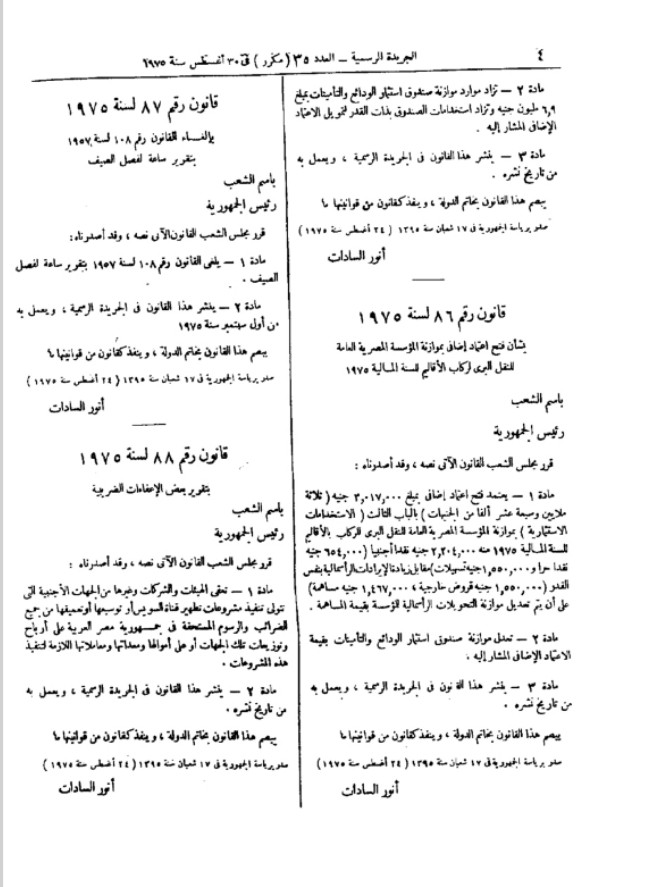 ٤
الجريدة الرسمية – العدد ٣٥ (مكرر) فى ٣٠ أغسطس سنة ١٩٧٥
مادة ٢ – تزاد موارد موازنة صندوق استثمار الودائع والتأمينات بمبلغ
٦,٩ مليون جنيه وتزاد استخدامات الصندوق بذات القدر لتمويل الاعتماد
الإضافى المشار إليه .
مادة ٣ – ينشر هذا القانون فى الجريدة الرسمية ، ويعمل به
من تاريخ نشره .
يبصم هذا القانون بخاتم الدولة ، وينفذ كقانون من قوانينها ما
صدر برياسة الجمهورية فى ١٧ شعبان سنة ١٣٩٥ ( ٢٤ أغسطس سنة ١٩٧٥ )
أنور السادات
قانون رقم ٨٦ لسنة ١٩٧٥
بشأن فتح اعتماد إضافى بموازنة المؤسسة المصرية العامة
للنقل البرى لركاب الأقاليم للسنة المالية ١٩٧٥
باسم الشعب
رئيس الجمهورية
قرر مجلس الشعب القانون الآتى نصه ، وقد أصدرناه :
مادة ١ – يعتمد فتح اعتماد إضافى بمبلغ ٣,٠١٧,٠٠٠ جنيه ( ثلاثة
ملايين وسبعة عشر ألفا من الجنيهات ) بالباب الثالث ( الاستخدامات
الاستثمارية ) بموازنة المؤسسة المصرية العامة للنقل البرى للركاب بالأقاليم
للسنة المالية ١٩٧٥ منه ٢,٢٠٤,٠٠٠ جنيه نقدا أجنبيا ( ٦٥٤,٠٠٠ جنيه
نقدا حرا و ١,٥٥٠,٠٠٠ جنيه تسهيلات ) مقابل زيادة الإيرادات الرأسمالية بنفس
القدر ( ١,٥٥٠,٠٠٠ جنيه قروض خارجية ، ١,٤٦٧,٠٠٠ جنيه مساهمة )
على أن يتم تعديل موازنة التحويلات الرأسمالية للمؤسسة بقيمة المساهمة .
مادة ٢ – تعدل موازنة صندوق استثمار الودائع والتأمينات بقيمة
الاعتماد الإضافى المشار إليه .
مادة ٣ – ينشر هذا القانون فى الجريدة الرسمية ، ويعمل به
من تاريخ نشره .
يبصم هذا القانون بخاتم الدولة ، وينفذ كقانون من قوانينها ما
صدر برياسة الجمهورية فى ١٧ شعبان سنة ١٣٩٥ ( ٢٤ أغسطس سنة ١٩٧٥ )
أنور السادات
قانون رقم ٨٧ لسنة ١٩٧٥
بإلغاء القانون رقم ١٠٨ لسنة ١٩٥٧
بتقرير ساعة لفصل الصيف
باسم الشعب
رئيس الجمهورية
قرر مجلس الشعب القانون الآتى نصه ، وقد أصدرناه :
مادة ١ – يلغى القانون رقم ١٠٨ لسنة ١٩٥٧ بتقرير ساعة لفصل
الصيف .
مادة ٢ – ينشر هذا القانون فى الجريدة الرسمية ، ويعمل به
من أول سبتمبر سنة ١٩٧٥
يبصم هذا القانون بخاتم الدولة ، وينفذ كقانون من قوانينها ما
صدر برياسة الجمهورية فى ١٧ شعبان سنة ١٣٩٥ ( ٢٤ أغسطس سنة ١٩٧٥ )
أنور السادات
قانون رقم ٨٨ لسنة ١٩٧٥
بتقرير بعض الإعفاءات الضريبية
باسم الشعب
رئيس الجمهورية
قرر مجلس الشعب القانون الآتى نصه ، وقد أصدرناه :
مادة ١ – تعفى الهيئات والشركات وغيرها من الجهات الأجنبية التى
تتولى تنفيذ مشروعات تطهير قناة السويس أو توسيعها أو تعميقها من جميع
الضرائب والرسوم المستحقة فى جمهورية مصر العربية على أرباح
وتوزيعات تلك الجهات أو على أموالها ومعداتها ومعاملاتها اللازمة لتنفيذ
هذه المشروعات .
مادة ٢ – ينشر هذا القانون فى الجريدة الرسمية ، ويعمل به
من تاريخ نشره .
يبصم هذا القانون بخاتم الدولة ، وينفذ كقانون من قوانينها ما
صدر برياسة الجمهورية فى ١٧ شعبان سنة ١٣٩٥ ( ٢٤ أغسطس سنة ١٩٧٥ )
أنور السادات